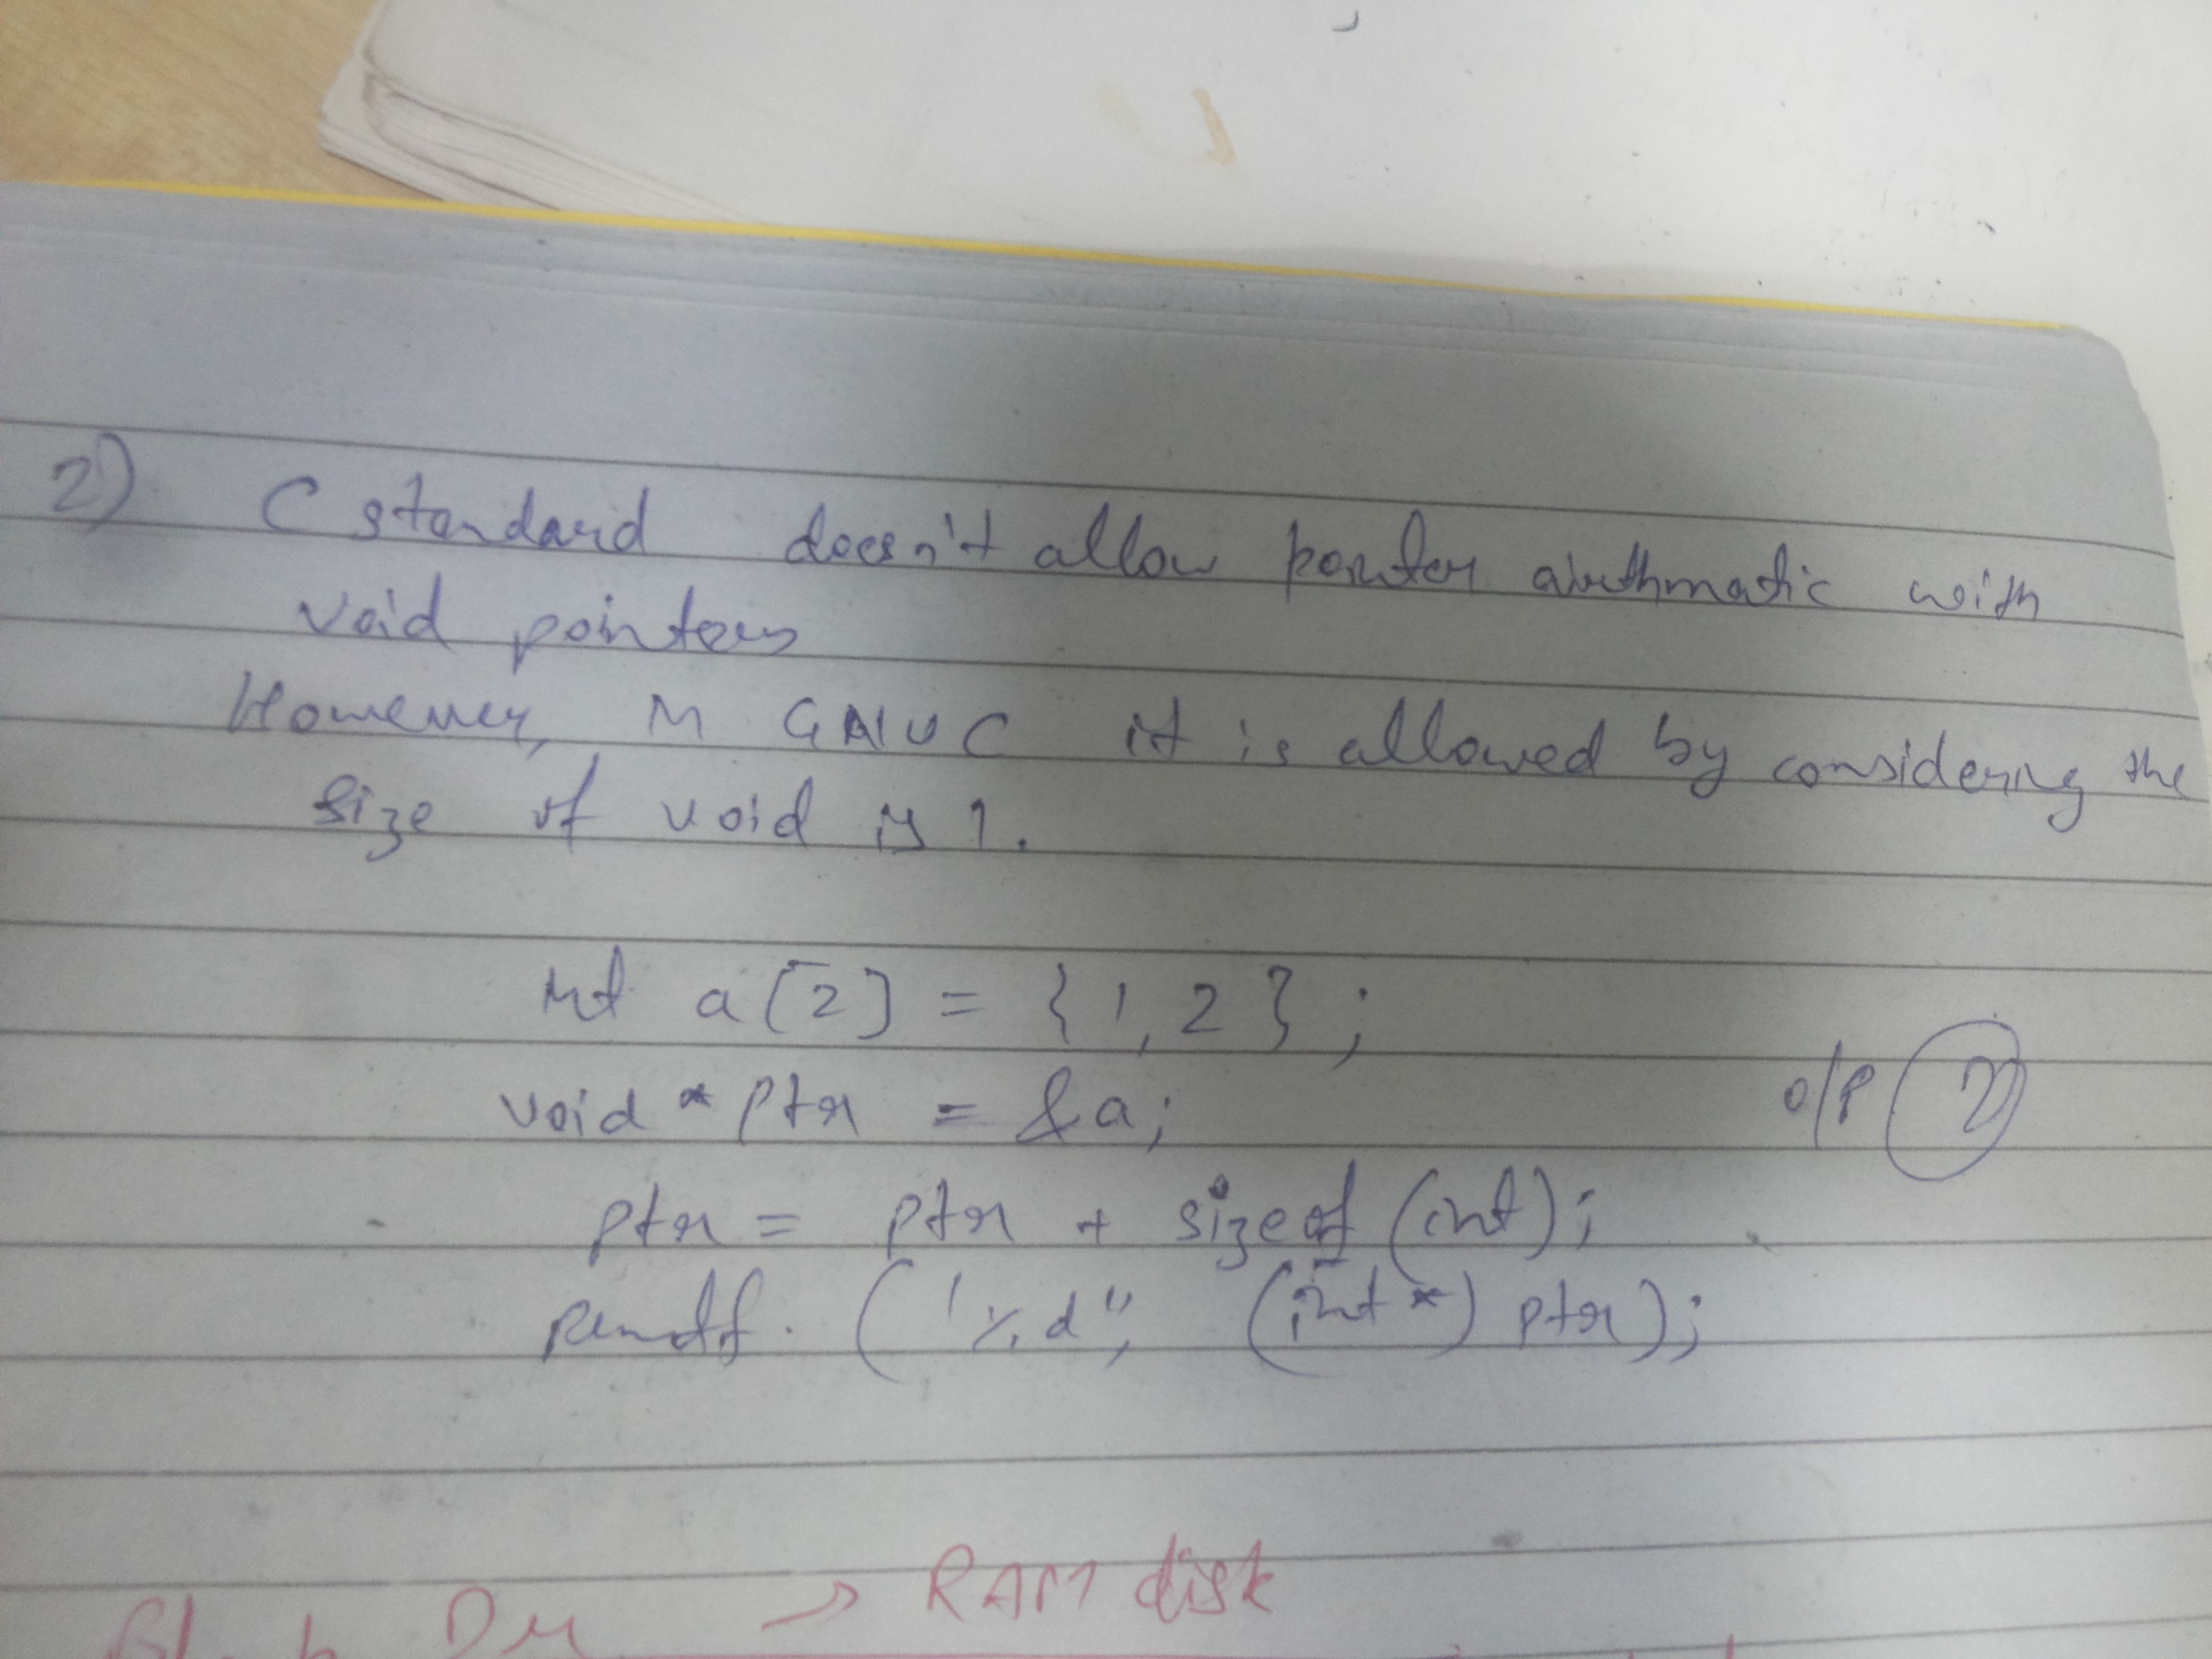 2) C standard doesn't allow pointer arithmatic with
void pointers
However, in GNU C it is allowed by considering the
size of void is 1.
int a[2] = {1,2};
void *ptr = &a;
o/p 2
ptr = ptr + sizeof(int);
printf. ("%d", (int*) ptr);
→ RAM disk